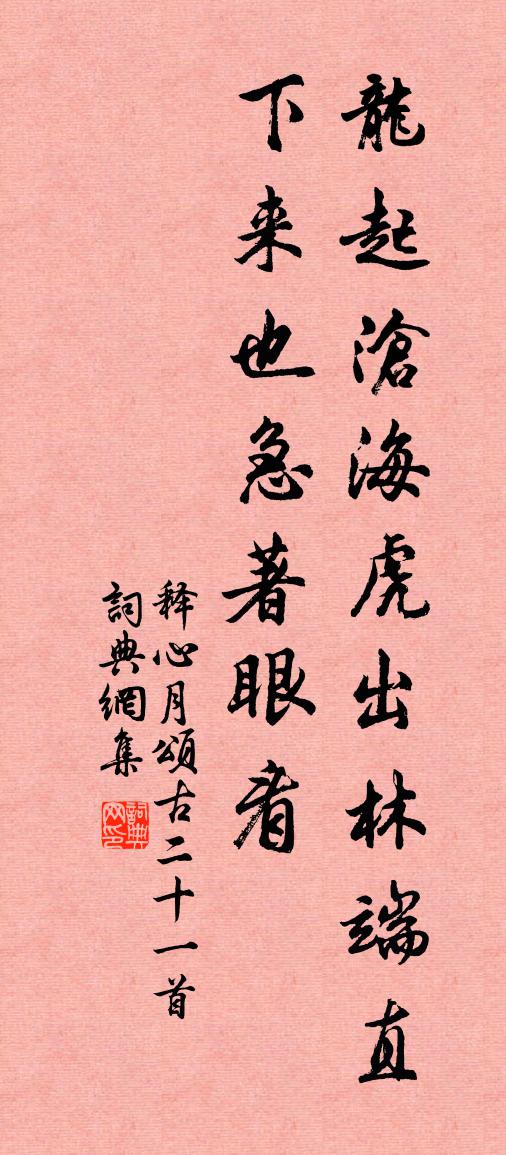 龍起滄海虎出林端直
下来也急著眼看
释心月頌古二十一首
詞典網集
詞典網印